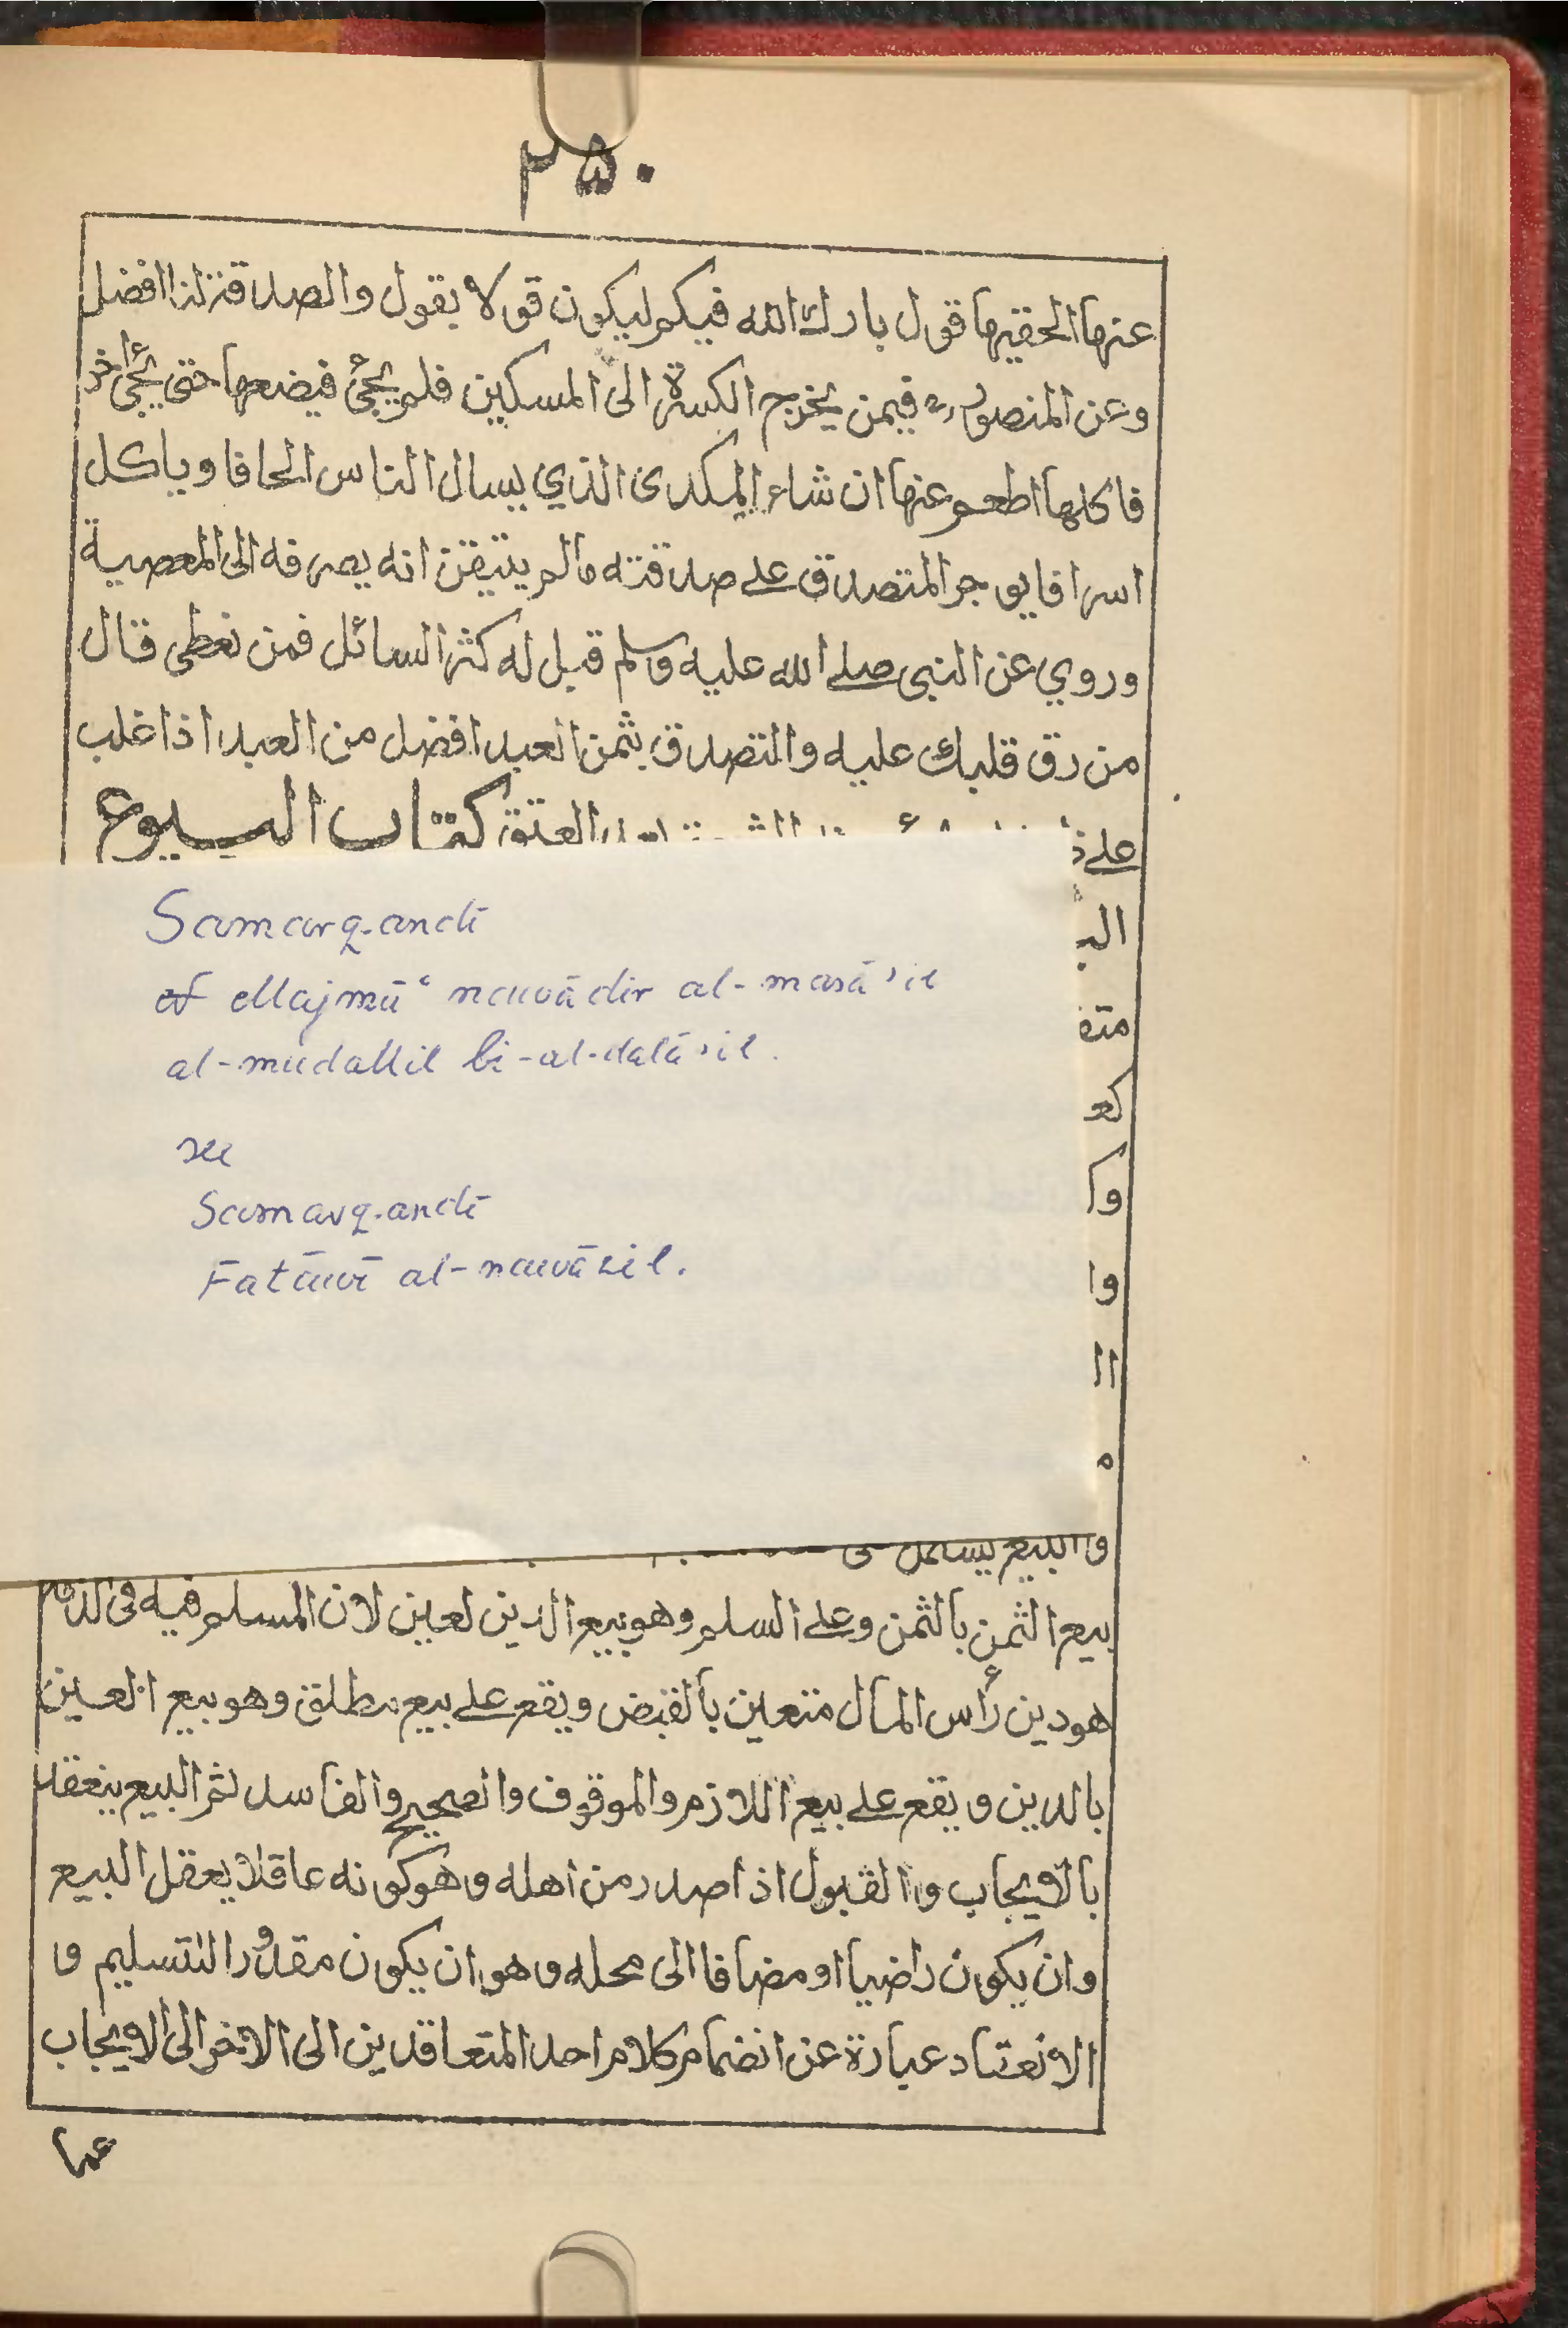 ٢٥٠
عنها الحقيرها قول بارك الله فيكم ليكون قولا يقول والصدقة لنا افضل
وعن المنصور فيمن يخرج الكسرة الى المسكين فلم يجئ فيضعها حتى يجئ آخر
فاكلها اطعم عنها ان شاء المكدى الذي يسال الناس الحافا وياكل
اسرافا يوجر المتصدق على صدقته مالم يتيقن انه يصرفه الى المعصية
وروي عن النبى صلى الله عليه وسلم قيل له كثر السائل فمن نعطى قال
من رق قلبك عليه والتصدق بثمن العبد افضل من العبد اذا غلب
العتق كتاب البيوع
Samarqandī
Majmūʿ nawādir al-masāʾil
al-mudallil bi-al-dalāʾil.
see
Samarqandī
Fatāwī al-nawāzil.
والبيع
بيع الثمن بالثمن وعلى السلم وهو بيع الدين لعين لان المسلم فيه فى الذمة
هو دين رأس المال متعين بالقبض ويقع على بيع مطلق وهو بيع العين
بالدين ويقع على بيع اللازم والموقوف والصحيح والفاسد ثم البيع ينعقد
بالايجاب والقبول اذا صدر من اهله وهو كونه عاقلا يعقل البيع
وان يكون راضيا او مضافا الى محله وهو ان يكون مقدور التسليم و
الانعقاد عبارة عن انضمام كلام احد المتعاقدين الى الاخر الى الايجاب